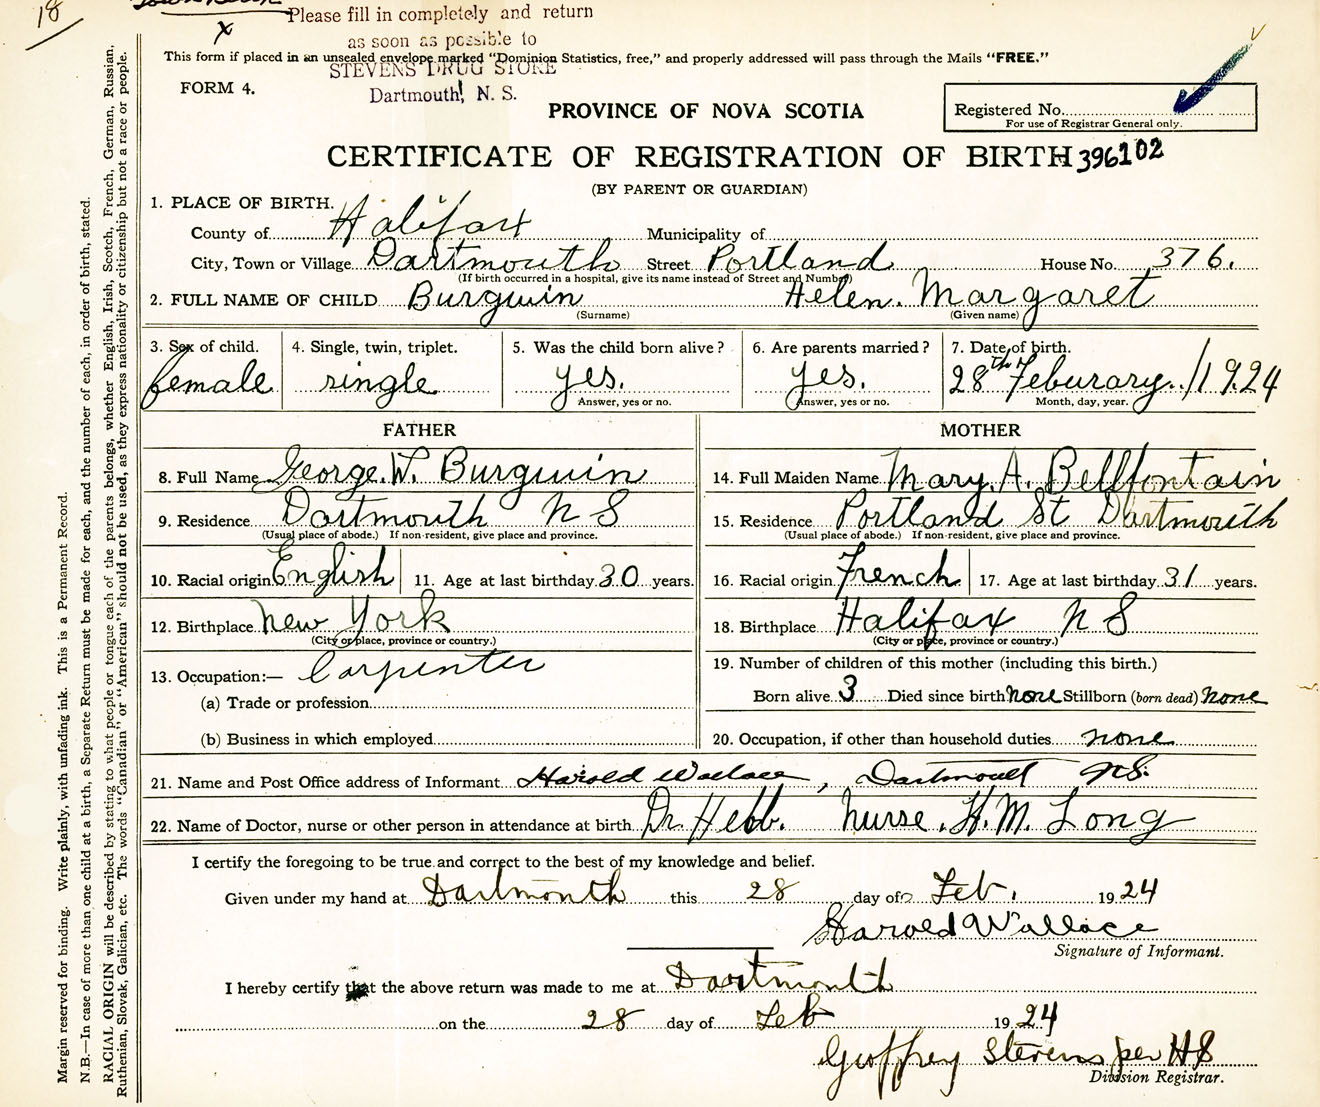 18
Please fill in completely and return
x
as soon as possible to
This form if placed in an unsealed envelope marked "Dominion Statistics, free," and properly addressed will pass through the Mails "FREE."
STEVENS DRUG STORE
FORM 4.
Dartmouth, N. S.
PROVINCE OF NOVA SCOTIA
Registered No.
For use of Registrar General only.
CERTIFICATE OF REGISTRATION OF BIRTH 396102
(BY PARENT OR GUARDIAN)
1. PLACE OF BIRTH.
County of Halifax Municipality of
City, Town or Village Dartmouth Street Portland House No. 376.
(If birth occurred in a hospital, give its name instead of Street and Number)
2. FULL NAME OF CHILD Burgwin Helen. Margaret
(Surname) (Given name)
3. Sex of child. 4. Single, twin, triplet. 5. Was the child born alive? 6. Are parents married? 7. Date of birth.
female single yes. yes. 28th Feburary. /1924
Answer, yes or no. Answer, yes or no. Month, day, year.
FATHER MOTHER
8. Full Name George. W. Burgwin 14. Full Maiden Name Mary. A. Bellfontain
9. Residence Dartmouth N S 15. Residence Portland St Dartmouth
(Usual place of abode.) If non-resident, give place and province. (Usual place of abode.) If non-resident, give place and province.
10. Racial origin English 11. Age at last birthday 30 years. 16. Racial origin French 17. Age at last birthday 31 years.
12. Birthplace New York 18. Birthplace Halifax N S
(City or place, province or country.) (City or place, province or country.)
13. Occupation:— Carpenter 19. Number of children of this mother (including this birth.)
(a) Trade or profession Born alive 3 Died since birth none Stillborn (born dead) none
(b) Business in which employed 20. Occupation, if other than household duties none
21. Name and Post Office address of Informant Harold Wallace, Dartmouth N.S.
22. Name of Doctor, nurse or other person in attendance at birth Dr. Hebb. Nurse. H. M. Long
I certify the foregoing to be true and correct to the best of my knowledge and belief.
Given under my hand at Dartmouth this 28 day of Feb. 1924
Harold Wallace
Signature of Informant.
I hereby certify that the above return was made to me at Dartmouth
on the 28 day of Feb 1924
Geoffrey Stevens per HS
Division Registrar.
Margin reserved for binding. Write plainly, with unfading ink. This is a Permanent Record.
N.B.—In case of more than one child at a birth, a Separate Return must be made for each, and the number of each, in order of birth, stated.
RACIAL ORIGIN will be described by stating to what people or tongue each of the parents belongs, whether English, Irish, Scotch, French, German, Russian,
Ruthenian, Slovak, Galician, etc. The words "Canadian" or "American" should not be used, as they express nationality or citizenship but not a race or people.